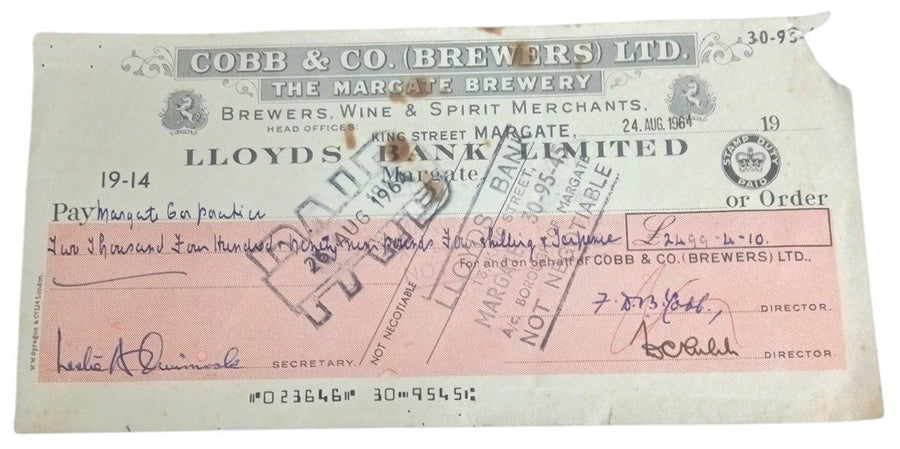 30-95-
COBB & CO. (BREWERS) LTD.
THE MARGATE BREWERY
BREWERS, WINE & SPIRIT MERCHANTS,
HEAD OFFICES: KING STREET MARGATE, 24 AUG. 1964 19
LLOYDS BANK LIMITED
Margate
STAMP DUTY PAID
19-14
Pay Margate Corporation or Order
Two Thousand Four Hundred & Ninety nine pounds Four shilling & Tenpence £2499-4-10.
For and on behalf of COBB & CO. (BREWERS) LTD.,
PAID
26 AUG 196
LLOYDS BANK
STREET,
MARGATE 30-95-45
A/C. BOROUGH OF MARGATE
NOT NEGOTIABLE
NOT NEGOTIABLE
F. D. B. Cobb, DIRECTOR.
Leslie A SECRETARY.
DIRECTOR.
W.W. Sprague & Co Ltd London.
⑈023646⑈ 30⑉9545⑆